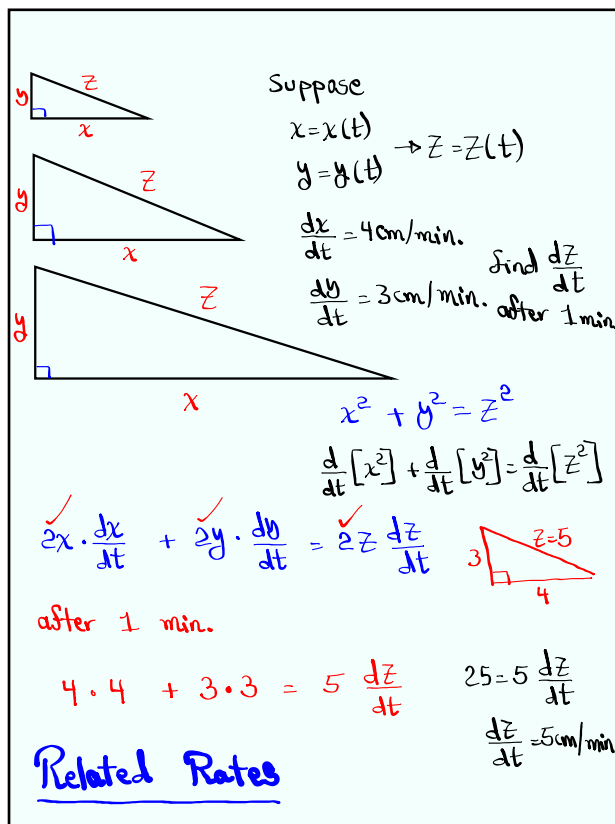 y z
x
y z
x
y z
x
Suppase
x = x(t)
y = y(t) → z = z(t)
dx/dt = 4cm/min.
dy/dt = 3cm/min.
find dz/dt
after 1 min.
x² + y² = z²
d/dt [x²] + d/dt [y²] = d/dt [z²]
2x · dx/dt + 2y · dy/dt = 2z dz/dt
3 z=5
4
after 1 min.
4 · 4 + 3 · 3 = 5 dz/dt
25 = 5 dz/dt
dz/dt = 5cm/min
Related Rates